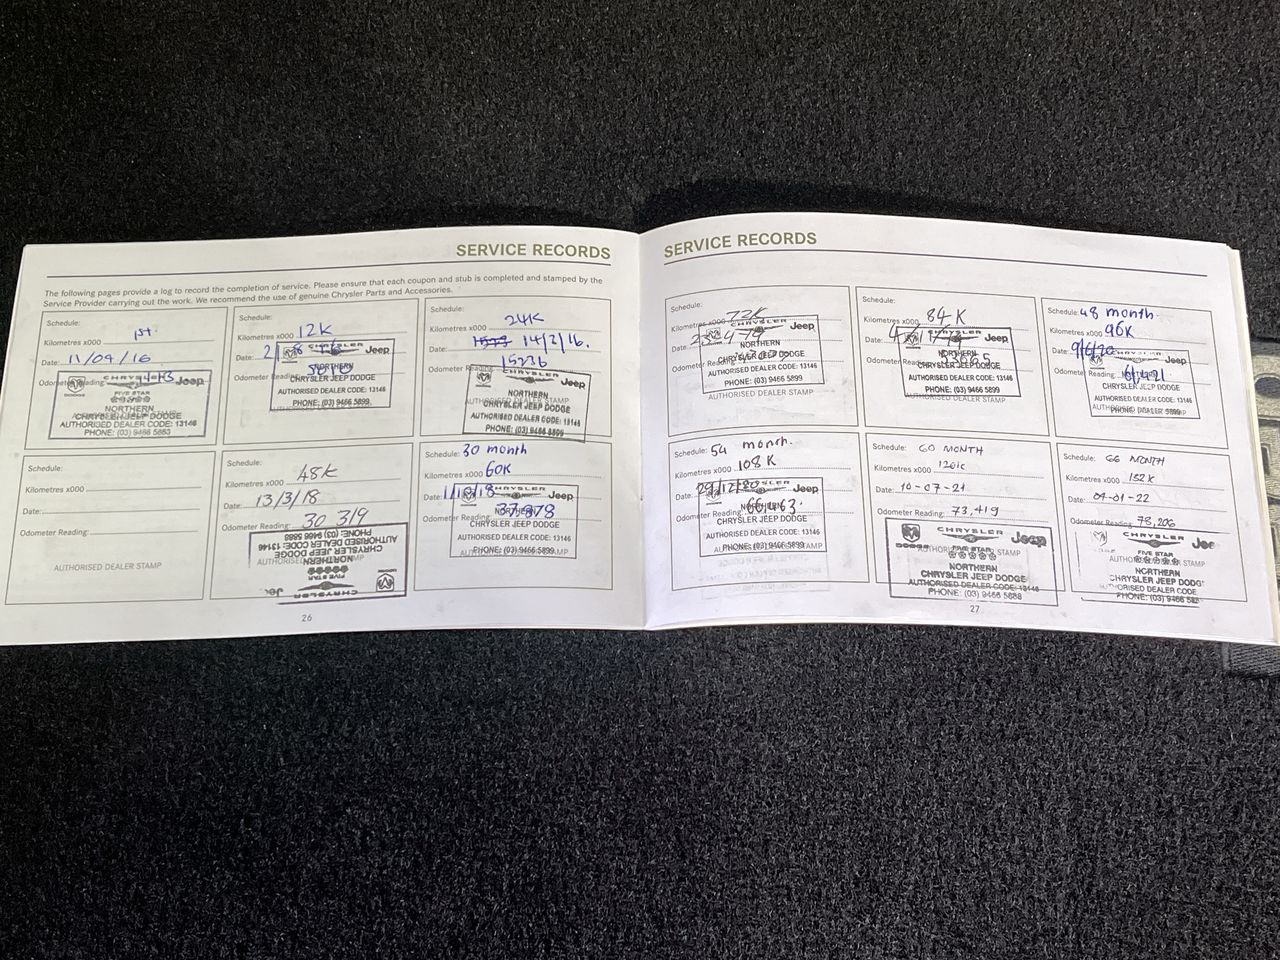 SERVICE RECORDS
The following pages provide a log to record the completion of service. Please ensure that each coupon and stub is completed and stamped by the
Service Provider carrying out the work. We recommend the use of genuine Chrysler Parts and Accessories.
Schedule:
1st.
Kilometres x000
Date: 11/04/16
Odometer Reading:
CHRYSLER Jeep
DODGE FIVE STAR
NORTHERN
CHRYSLER JEEP DODGE
AUTHORISED DEALER CODE: 13146
PHONE: (03) 9466 5883
Schedule:
Kilometres x000 12K
Date:
Odometer Reading:
Jeep
NORTHERN
CHRYSLER JEEP DODGE
AUTHORISED DEALER CODE: 13146
PHONE: (03) 9466 5899
AUTHORISED DEALER STAMP
Schedule:
24K
Kilometres x000
Date: 14/2/16.
15236
Odometer Reading:
CHRYSLER
Jeep
NORTHERN
AUTHORISED DEALER STAMP
CHRYSLER JEEP DODGE
AUTHORISED DEALER CODE: 13146
PHONE: (03) 9466 5899
Schedule:
Kilometres x000
Date:
Odometer Reading:
AUTHORISED DEALER STAMP
Schedule: 48K
Kilometres x000
Date: 13/3/18
Odometer Reading: 30 319
PHONE: (03) 9466 5883
AUTHORISED DEALER CODE: 13146
CHRYSLER JEEP DODGE
NORTHERN
FIVE STAR
CHRYSLER
Schedule: 30 month
Kilometres x000 60K
Date: 1/10/18
Odometer Reading: 37878
CHRYSLER
Jeep
NORTHERN
CHRYSLER JEEP DODGE
AUTHORISED DEALER CODE: 13146
AUTHORISED DEALER STAMP
PHONE: (03) 9466 5899
26
SERVICE RECORDS
Schedule:
Kilometres x000 72K
Date:
Odometer Reading:
CHRYSLER
Jeep
NORTHERN
CHRYSLER JEEP DODGE
AUTHORISED DEALER CODE: 13146
PHONE: (03) 9466 5899
AUTHORISED DEALER STAMP
Schedule:
Kilometres x000 84K
Date:
Odometer Reading:
CHRYSLER
Jeep
NORTHERN
CHRYSLER JEEP DODGE
AUTHORISED DEALER CODE: 13146
PHONE: (03) 9466 5899
AUTHORISED DEALER STAMP
Schedule: 48 month
Kilometres x000 96K
Date: 9/6/20
Odometer Reading: 61421
CHRYSLER
Jeep
CHRYSLER JEEP DODGE
AUTHORISED DEALER CODE: 13146
PHONE: (03) 9466 5899
Schedule: 54 month.
Kilometres x000 108K
Date: 29/12/20
Odometer Reading: 66463.
CHRYSLER
Jeep
NORTHERN
CHRYSLER JEEP DODGE
AUTHORISED DEALER CODE: 13146
PHONE: (03) 9466 5899
Schedule: 60 MONTH
Kilometres x000 120K
Date: 10-07-21
Odometer Reading: 73,419
CHRYSLER
DODGE FIVE STAR Jeep
AUTHORISED DEALER STAMP
NORTHERN
CHRYSLER JEEP DODGE
AUTHORISED DEALER CODE: 13146
PHONE: (03) 9466 5883
Schedule: 66 MONTH
Kilometres x000 132K
Date: 04-01-22
Odometer Reading: 78,206
CHRYSLER
FIVE STAR
NORTHERN
CHRYSLER JEEP DODG
AUTHORISED DEALER CODE: 13146
PHONE: (03) 9466
27